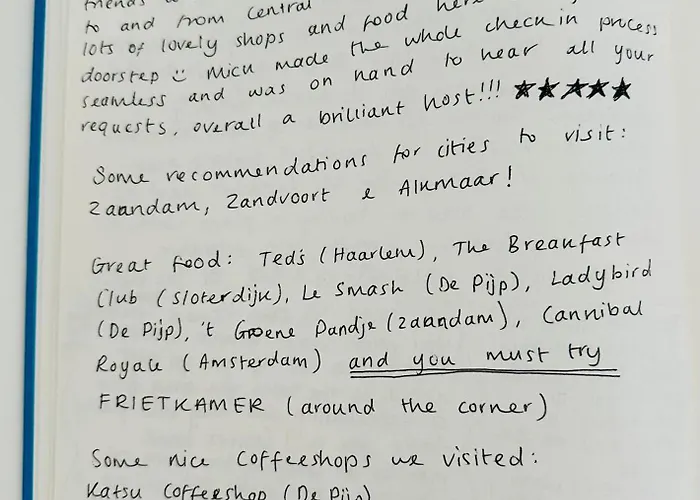 friends
to and from central
lots of lovely shops and food
doorstep :) Micu made the whole check in process
seamless and was on hand to hear all your
requests, overall a brilliant host!!! ★★★★★
Some recommendations for cities to visit:
Zaandam, Zandvoort & Alkmaar!
Great food: Ted's (Haarlem), The Breakfast
Club (Sloterdijk), Le Smash (De Pijp), Ladybird
(De Pijp), 't Groene Pandje (Zaandam), Cannibal
Royale (Amsterdam) and you must try
FRIETKAMER (around the corner)
Some nice Coffeeshops we visited:
Katsu Coffeeshop (De Pijp)